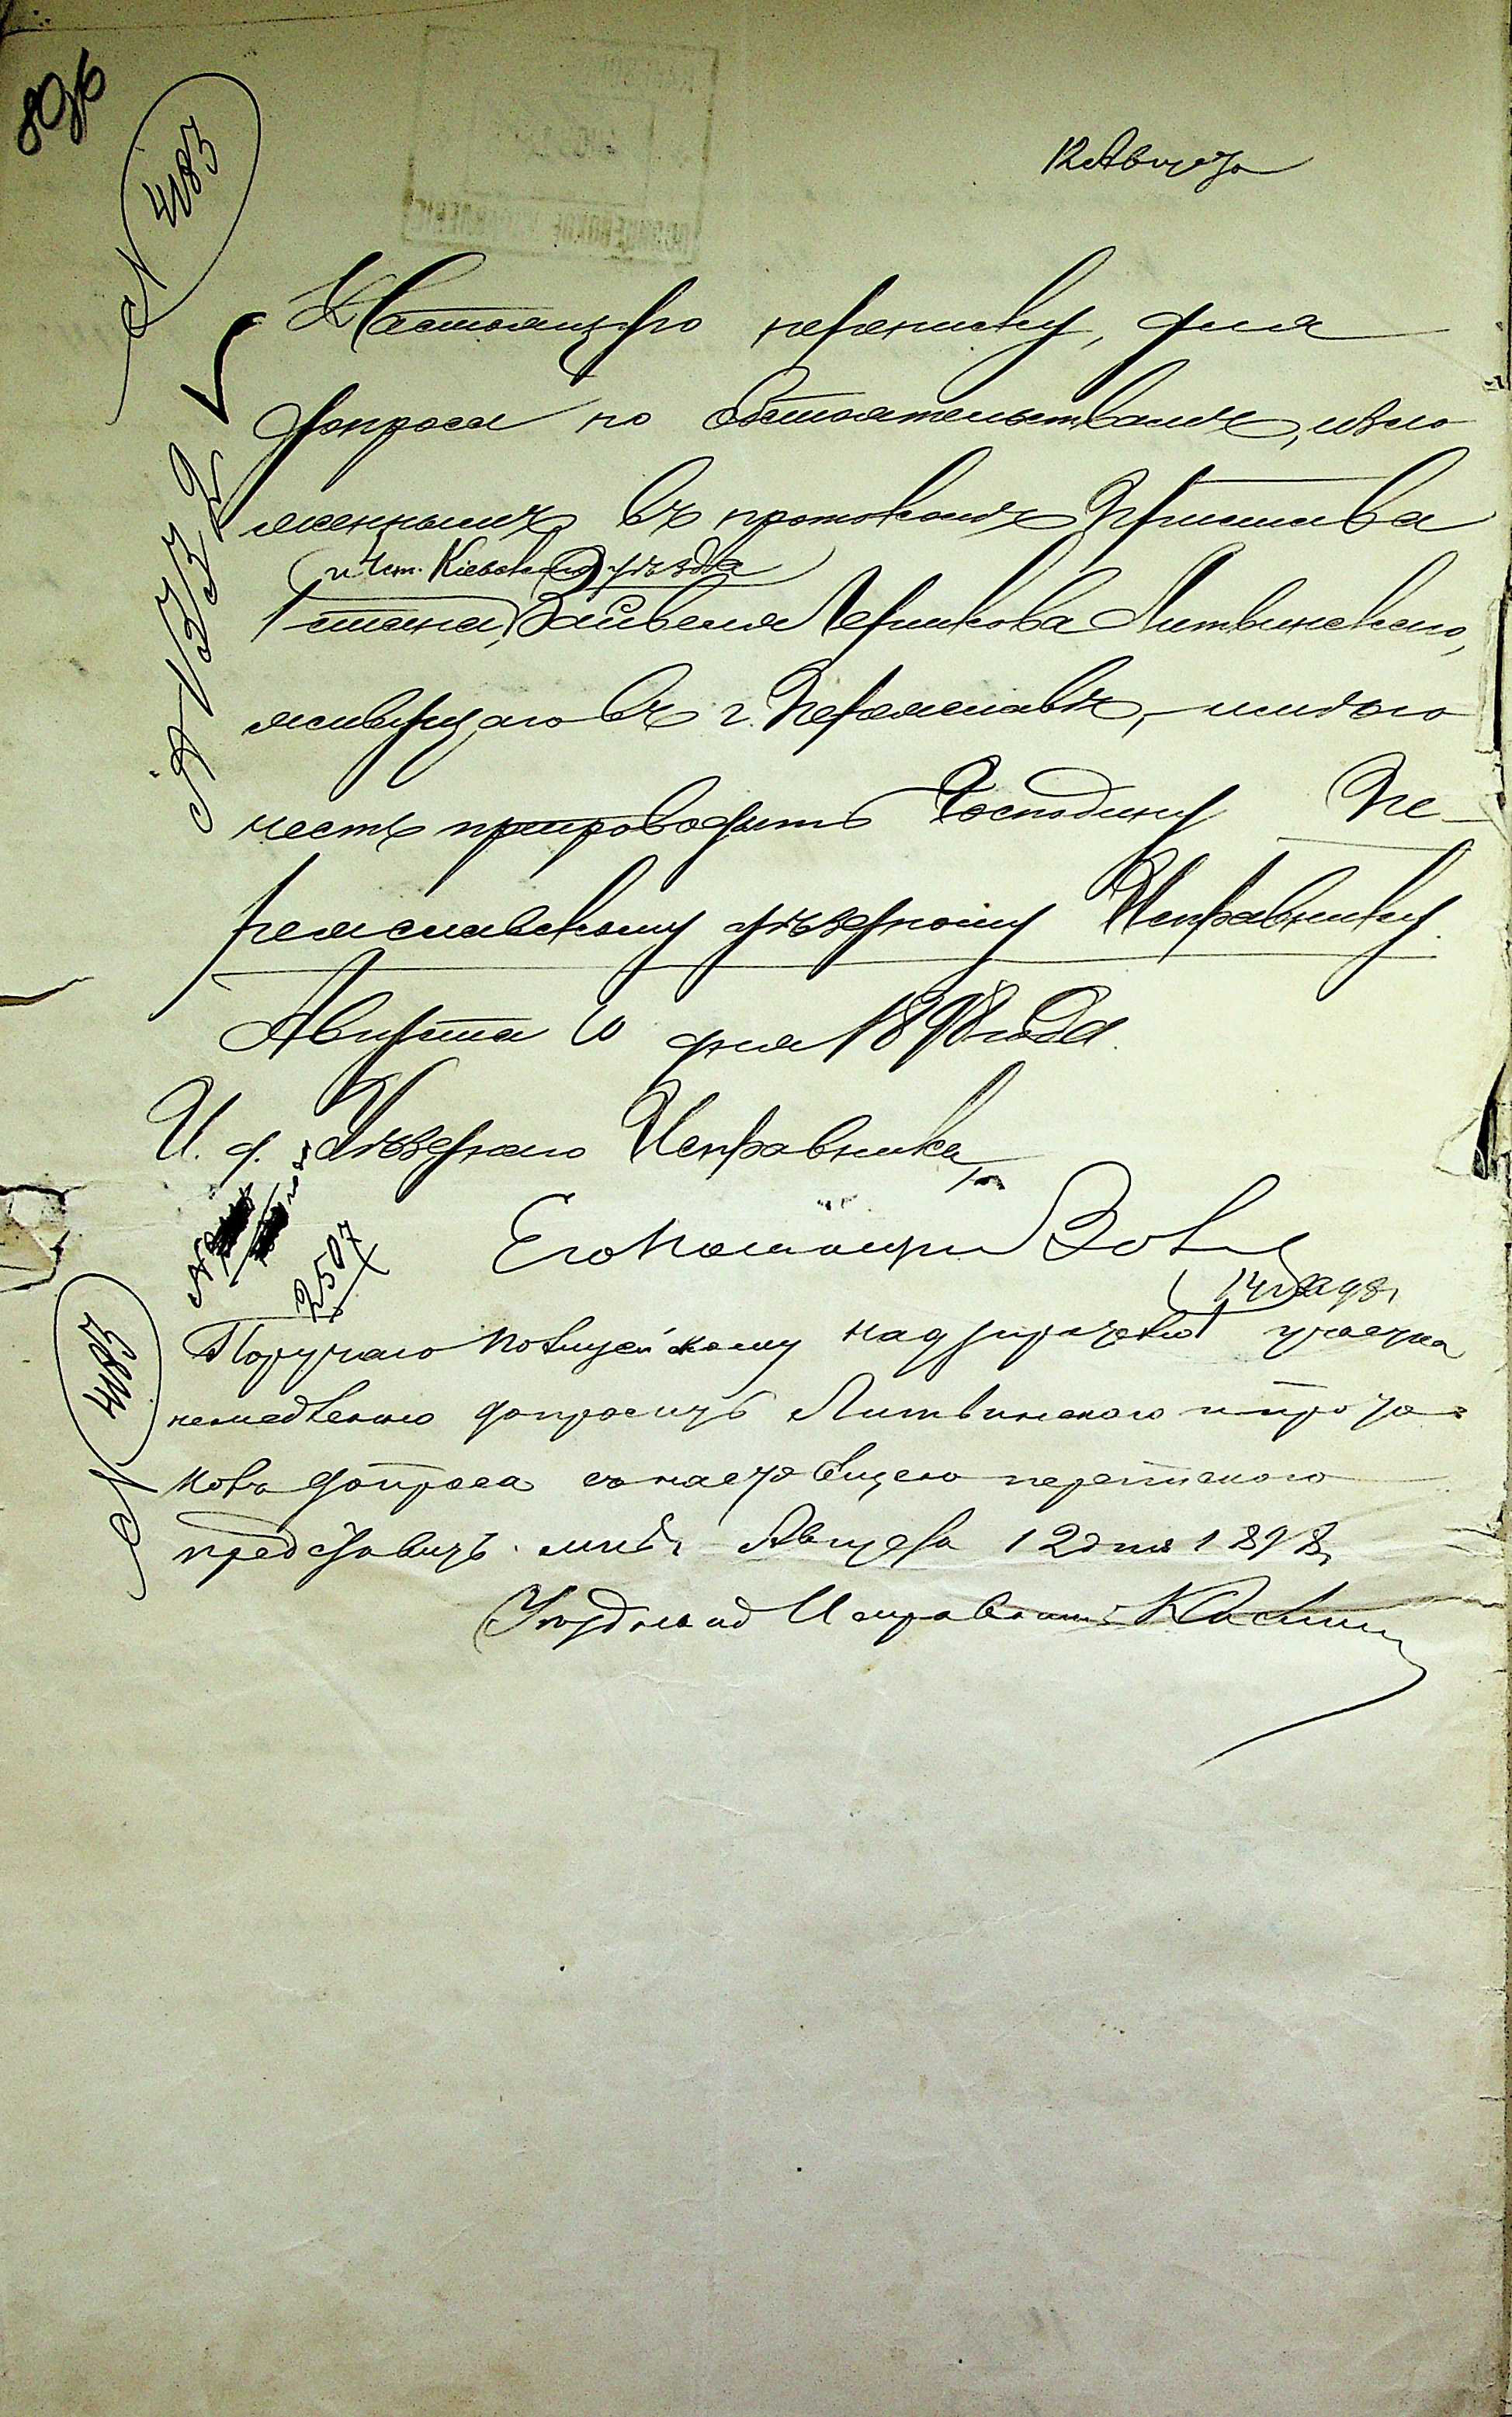 896
№ 4183
12 Августа
№ 1332
Настоящую переписку, для
допроса по обстоятельствамъ, изло
женнымъ въ протоколѣ Пристава
и 4 ст. Кіевскаго уѣзда
1 стана, Вайвеля Лейзерова Литвинскаго,
живущаго въ г. Переяславѣ, имѣю
честь препроводить Господину Пе-
реяславскому уѣздному Исправнику.
Августа 10 дня 1898 года.
И. д. Уѣзднаго Исправника,
2507
14 98 г.
№ 4183
Поручаю Полицейскому надзирателю участка
немедленно допросить Литвинскаго и прото
колъ допроса съ настоящею перепискою
представить мнѣ. Августа 12 дня 1898 г.
Уѣздный Исправникъ